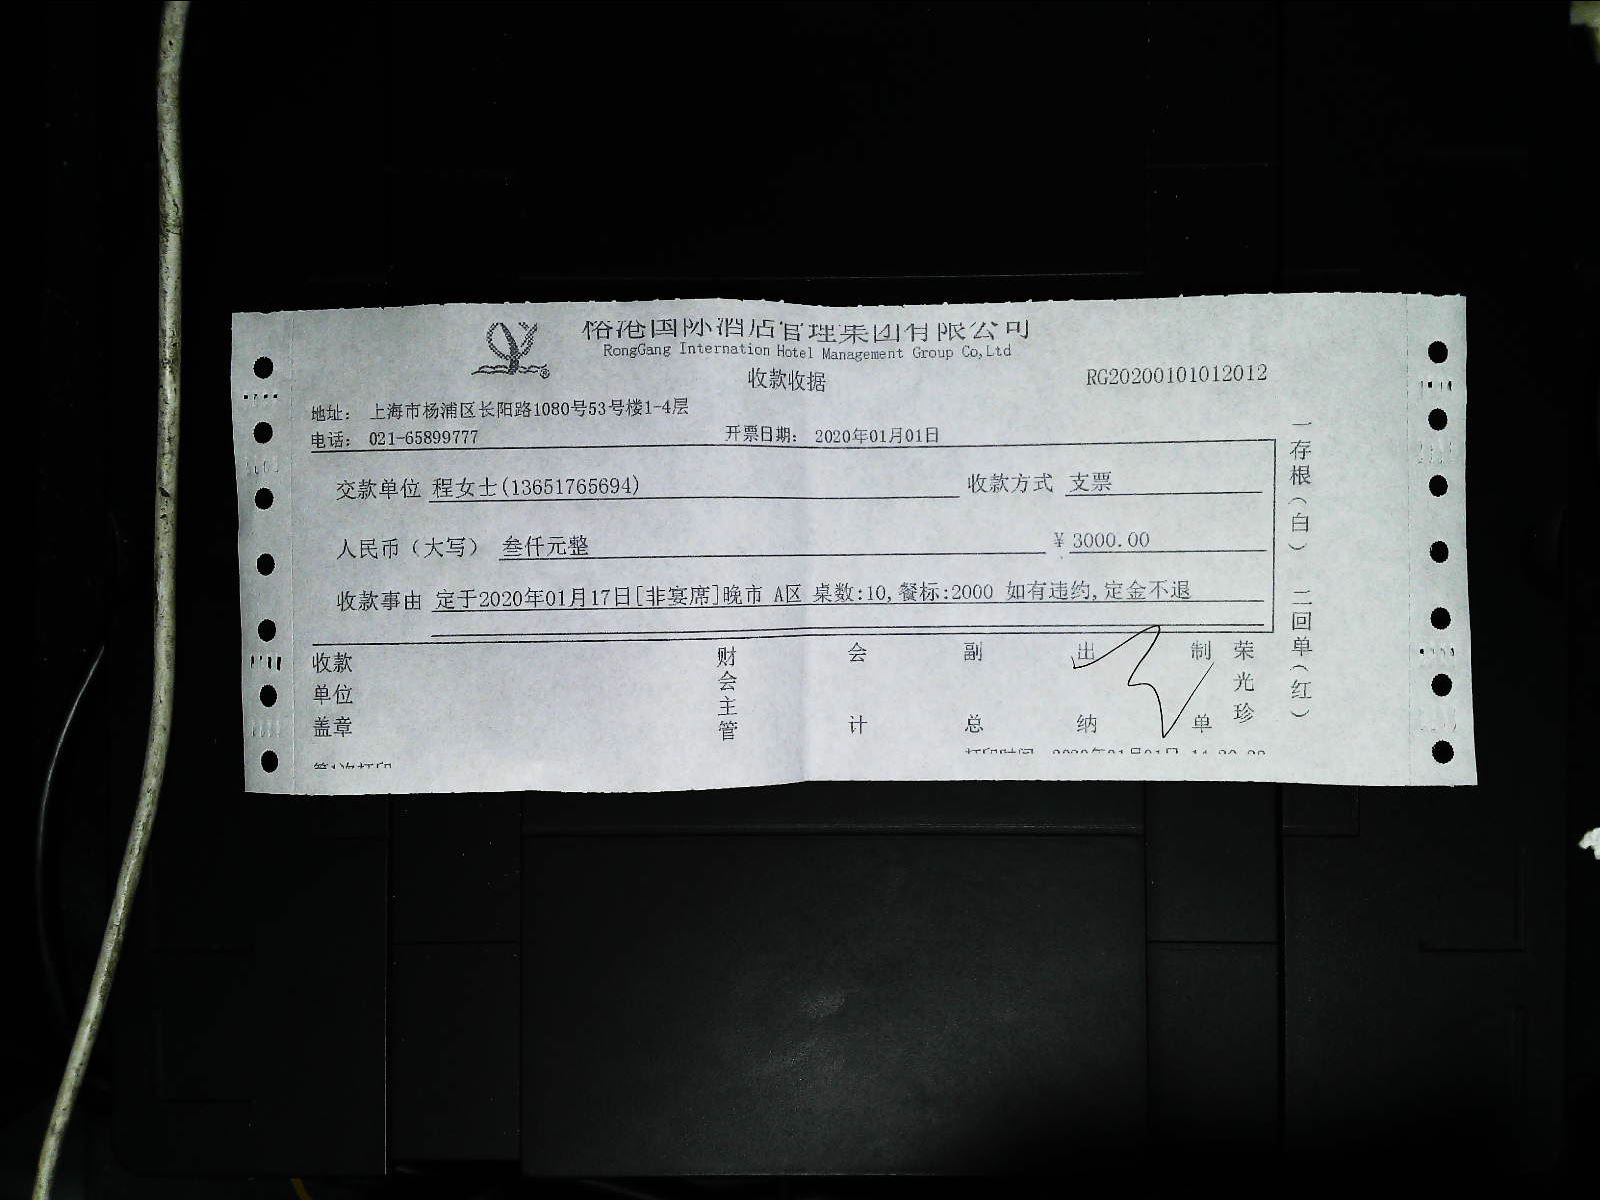 榕港国际酒店管理集团有限公司
RongGang Internation Hotel Management Group Co,Ltd
收款收据
RG20200101012012
地址： 上海市杨浦区长阳路1080号53号楼1-4层
电话： 021-65899777 开票日期： 2020年01月01日
交款单位 程女士(13651765694) 收款方式 支票
人民币（大写） 叁仟元整 ¥ 3000.00
收款事由 定于2020年01月17日[非宴席]晚市 A区 桌数:10,餐标:2000 如有违约,定金不退
收款单位盖章 财会主管 会计 副总 出纳 制单 荣光珍
一存根（白） 二回单（红）
第1次打印
打印时间 2020年01月01日